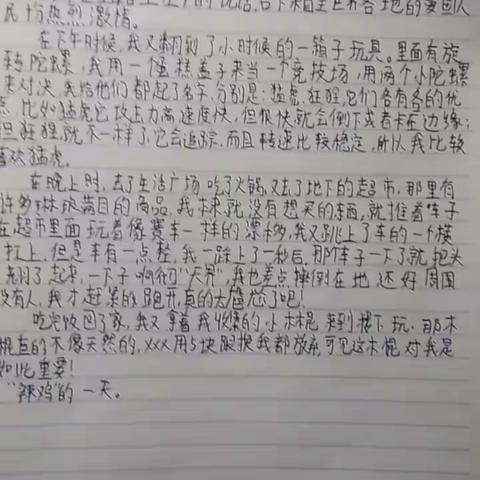 民均热到激情。
在下午时候,我又翻到了小时候的一箱子玩具。里面有旋
转陀螺,我用一个蛋糕盖子来当一个竞技场,用两个小陀螺
来对决,我给他们都起了名字,分别是:猛虎、狂醒,它们各有各的优
点,比如猛虎它攻击力高速度快,但很快就会倒下或者卡在边缘;
但狂醒就不一样了,它会追踪,而且转速比较稳定,所以我比较
喜欢猛虎。
在晚上时,去了生活广场吃了火锅,又去了地下的超市,那里有
许多琳琅满目的商品,我本来就没有想买的东西,就推着车子
在超市里面玩着像赛车一样的漂移,我又跳上了车的一个横
杠上,但是车有一点轻,我一踩上了一秒后,那个车子一下了就把头
翘了起来,一下子"啊行"天界",我也差点摔倒在地,还好周围
没有人,我才赶紧的跑开,真的太尴尬了吧!
吃完饭回了家,我又拿着我收集的小木棍来到楼下玩,那木
棍直的不像天然的,xxx用5块跟换我都放弃,可见这木棍对我是
如此重要!
"辣鸡"的一天。